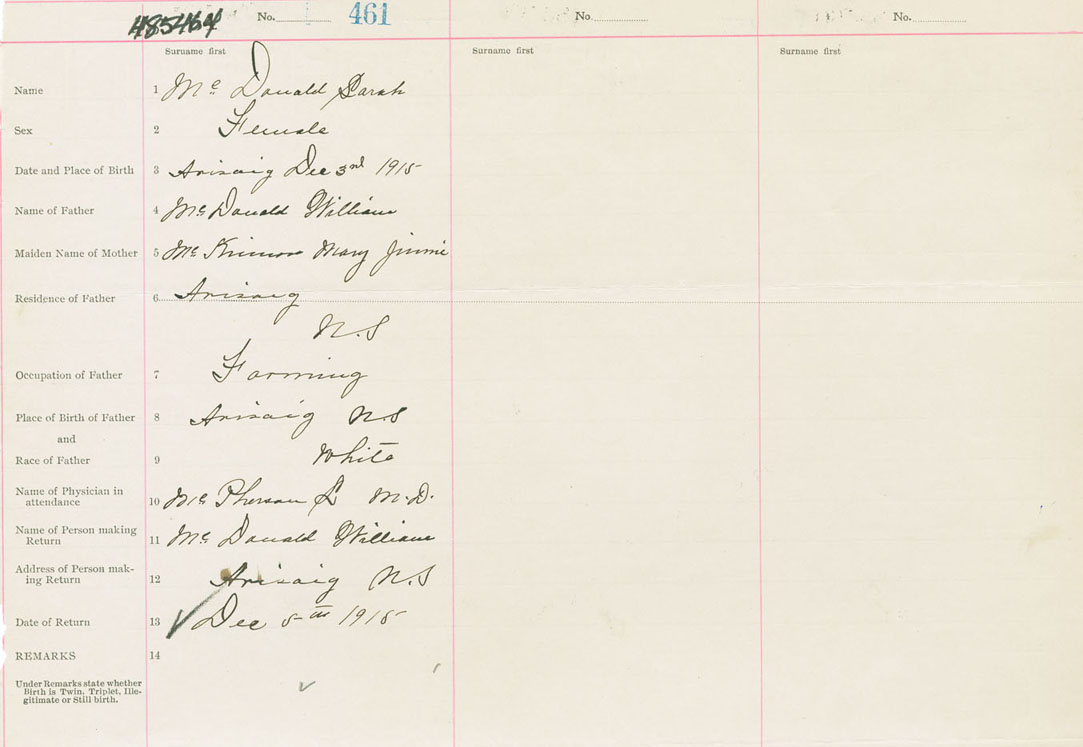 No. 461 No. No.
Surname first Surname first Surname first
Name 1 Mc Donald Sarah
Sex 2 Female
Date and Place of Birth 3 Arisaig Dec 3rd 1915
Name of Father 4 Mc Donald William
Maiden Name of Mother 5 Mc Mary Jimmie
Residence of Father 6 Arisaig
N.S
Occupation of Father 7 Farming
Place of Birth of Father 8 Arisaig N.S
and
Race of Father 9 White
Name of Physician in
attendance 10 Mc Pherson M.D.
Name of Person making
Return 11 Mc Donald William
Address of Person mak-
ing Return 12 Arisaig N.S
Date of Return 13 Dec 5th 1915
REMARKS 14
Under Remarks state whether
Birth is Twin, Triplet, Ille-
gitimate or Still birth.